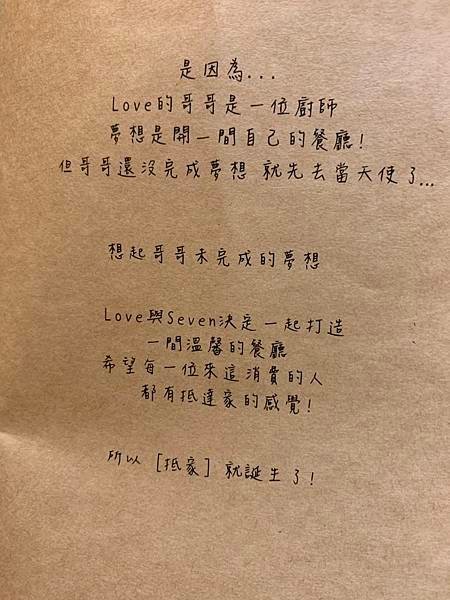 是因為...
Love的哥哥是一位廚師
夢想是開一間自己的餐廳!
但哥哥還沒完成夢想 就先去當天使了...
想起哥哥未完成的夢想
Love與Seven決定一起打造
一間溫馨的餐廳
希望每一位來這消費的人
都有抵達家的感覺!
所以 [抵家] 就誕生了!